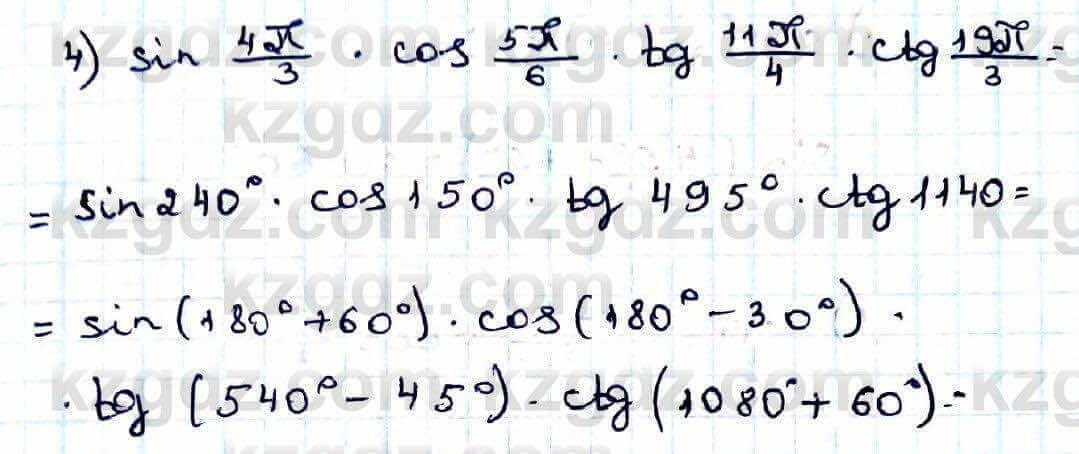 4) sin 4π/3 · cos 5π/6 · tg 11π/4 · ctg 19π/3 =
= sin 240° · cos 150° · tg 495° · ctg 1140 =
= sin (180° + 60°) · cos (180° - 30°) ·
· tg (540° - 45°) · ctg (1080° + 60°) =
kzgdz.com